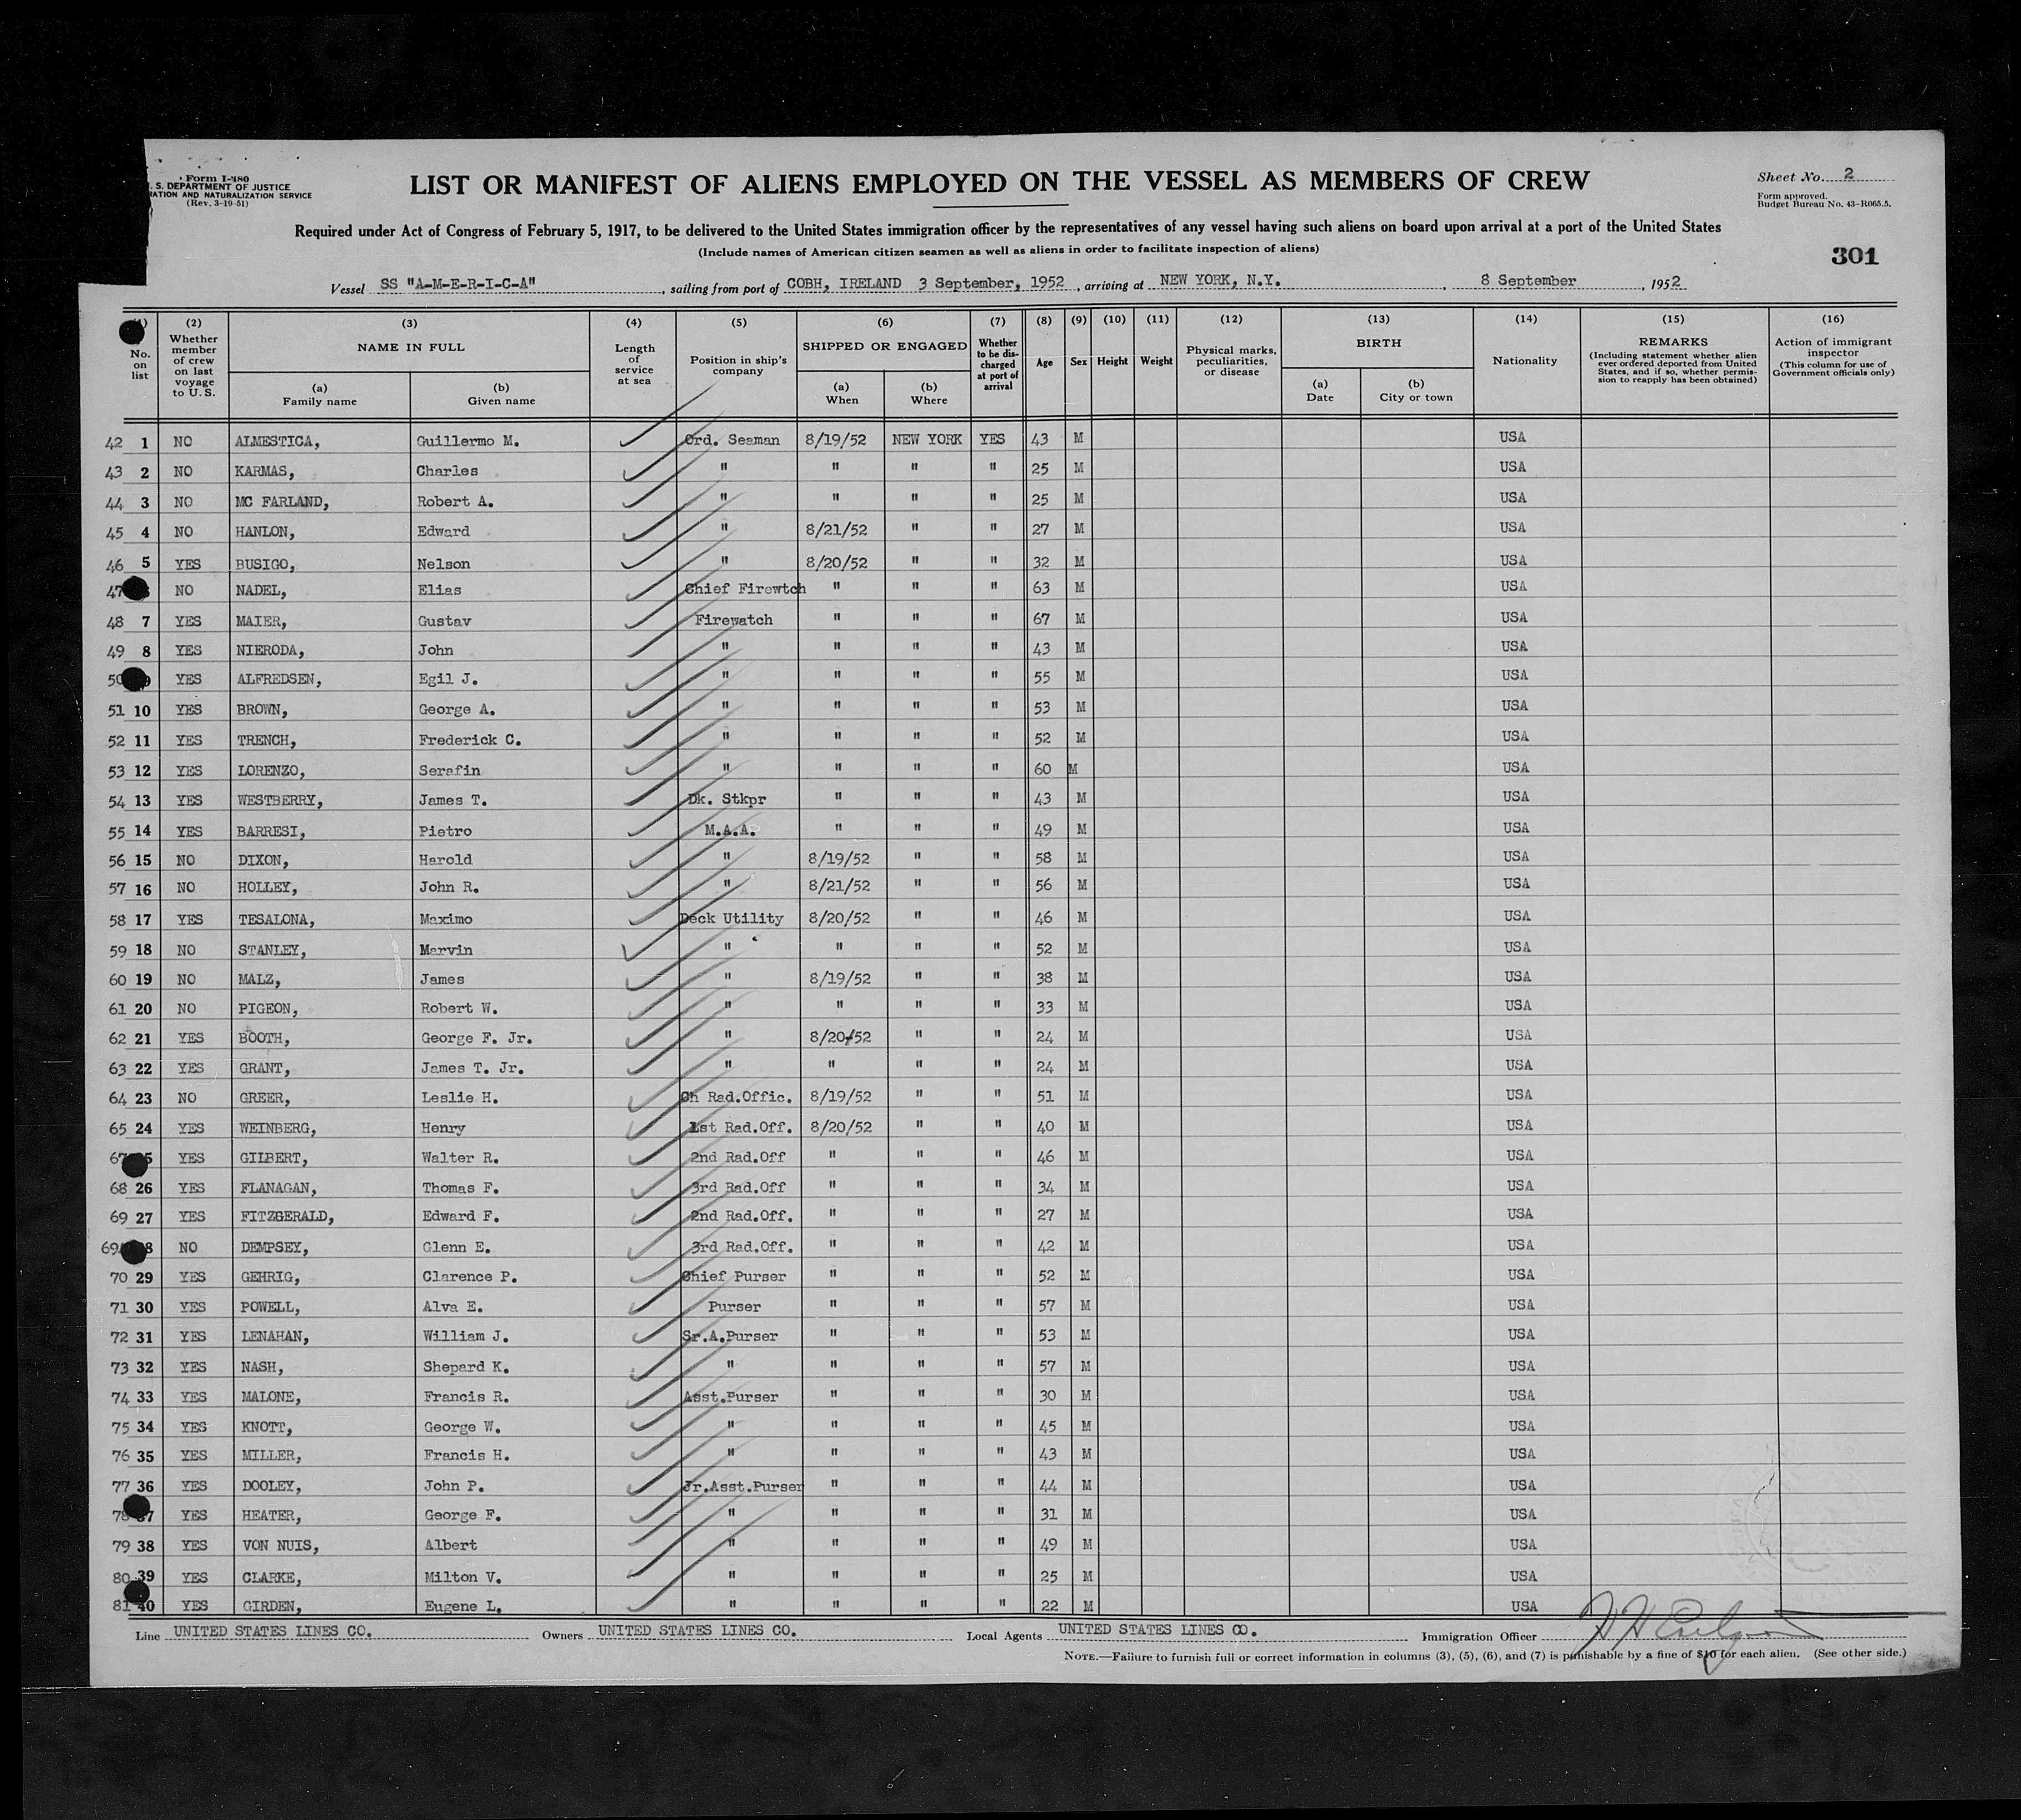 Form I-480
S. DEPARTMENT OF JUSTICE
AND NATURALIZATION SERVICE
(Rev. 3-19-51)
LIST OR MANIFEST OF ALIENS EMPLOYED ON THE VESSEL AS MEMBERS OF CREW
Sheet No. 2
Form approved.
Budget Bureau No. 43-R065.5.
Required under Act of Congress of February 5, 1917, to be delivered to the United States immigration officer by the representatives of any vessel having such aliens on board upon arrival at a port of the United States
(Include names of American citizen seamen as well as aliens in order to facilitate inspection of aliens)
301
Vessel SS "A-M-E-R-I-C-A", sailing from port of COBH, IRELAND 3 September, 1952, arriving at NEW YORK, N.Y., 8 September, 1952
No. on list (2) Whether member of crew on last voyage to U. S. (3) NAME IN FULL (a) Family name (b) Given name (4) Length of service at sea (5) Position in ship's company (6) SHIPPED OR ENGAGED (a) When (b) Where (7) Whether to be discharged at port of arrival (8) Age (9) Sex (10) Height (11) Weight (12) Physical marks, peculiarities, or disease (13) BIRTH (a) Date (b) City or town (14) Nationality (15) REMARKS (Including statement whether alien ever ordered deported from United States, and if so, whether permission to reapply has been obtained) (16) Action of immigrant inspector (This column for use of Government officials only)
42 1 NO ALMESTICA, Guillermo M. Ord. Seaman 8/19/52 NEW YORK YES 43 M USA
43 2 NO KARMAS, Charles " " " " 25 M USA
44 3 NO MC FARLAND, Robert A. " " " " 25 M USA
45 4 NO HANLON, Edward " 8/21/52 " " 27 M USA
46 5 YES BUSIGO, Nelson " 8/20/52 " " 32 M USA
47 NO NADEL, Elias Chief Firewtch " " " 63 M USA
48 7 YES MAIER, Gustav Firewatch " " " 67 M USA
49 8 YES NIERODA, John " " " " 43 M USA
50 9 YES ALFREDSEN, Egil J. " " " " 55 M USA
51 10 YES BROWN, George A. " " " " 53 M USA
52 11 YES TRENCH, Frederick C. " " " " 52 M USA
53 12 YES LORENZO, Serafin " " " " 60 M USA
54 13 YES WESTBERRY, James T. Dk. Stkpr " " " 43 M USA
55 14 YES BARRESI, Pietro M.A.A. " " " 49 M USA
56 15 NO DIXON, Harold " 8/19/52 " " 58 M USA
57 16 NO HOLLEY, John R. " 8/21/52 " " 56 M USA
58 17 YES TESALONA, Maximo Deck Utility 8/20/52 " " 46 M USA
59 18 NO STANLEY, Marvin " " " " 52 M USA
60 19 NO MALZ, James " 8/19/52 " " 38 M USA
61 20 NO PIGEON, Robert W. " " " " 33 M USA
62 21 YES BOOTH, George F. Jr. " 8/20/52 " " 24 M USA
63 22 YES GRANT, James T. Jr. " " " " 24 M USA
64 23 NO GREER, Leslie H. Ch Rad.Offic. 8/19/52 " " 51 M USA
65 24 YES WEINBERG, Henry 1st Rad.Off. 8/20/52 " " 40 M USA
67 25 YES GILBERT, Walter R. 2nd Rad.Off " " " 46 M USA
68 26 YES FLANAGAN, Thomas F. 3rd Rad.Off " " " 34 M USA
69 27 YES FITZGERALD, Edward F. 2nd Rad.Off. " " " 27 M USA
28 NO DEMPSEY, Glenn E. 3rd Rad.Off. " " " 42 M USA
70 29 YES GEHRIG, Clarence P. Chief Purser " " " 52 M USA
71 30 YES POWELL, Alva E. Purser " " " 57 M USA
72 31 YES LENAHAN, William J. Sr.A.Purser " " " 53 M USA
73 32 YES NASH, Shepard K. " " " " 57 M USA
74 33 YES MALONE, Francis R. Asst.Purser " " " 30 M USA
75 34 YES KNOTT, George W. " " " " 45 M USA
76 35 YES MILLER, Francis H. " " " " 43 M USA
77 36 YES DOOLEY, John P. Jr.Asst.Purser " " " 44 M USA
78 37 YES HEATER, George F. " " " " 31 M USA
79 38 YES VON NUIS, Albert " " " " 49 M USA
80 39 YES CLARKE, Milton V. " " " " 25 M USA
81 40 YES GIRDEN, Eugene L. " " " " 22 M USA
Line UNITED STATES LINES CO. Owners UNITED STATES LINES CO. Local Agents UNITED STATES LINES CO. Immigration Officer
NOTE.—Failure to furnish full or correct information in columns (3), (5), (6), and (7) is punishable by a fine of $10 for each alien. (See other side.)